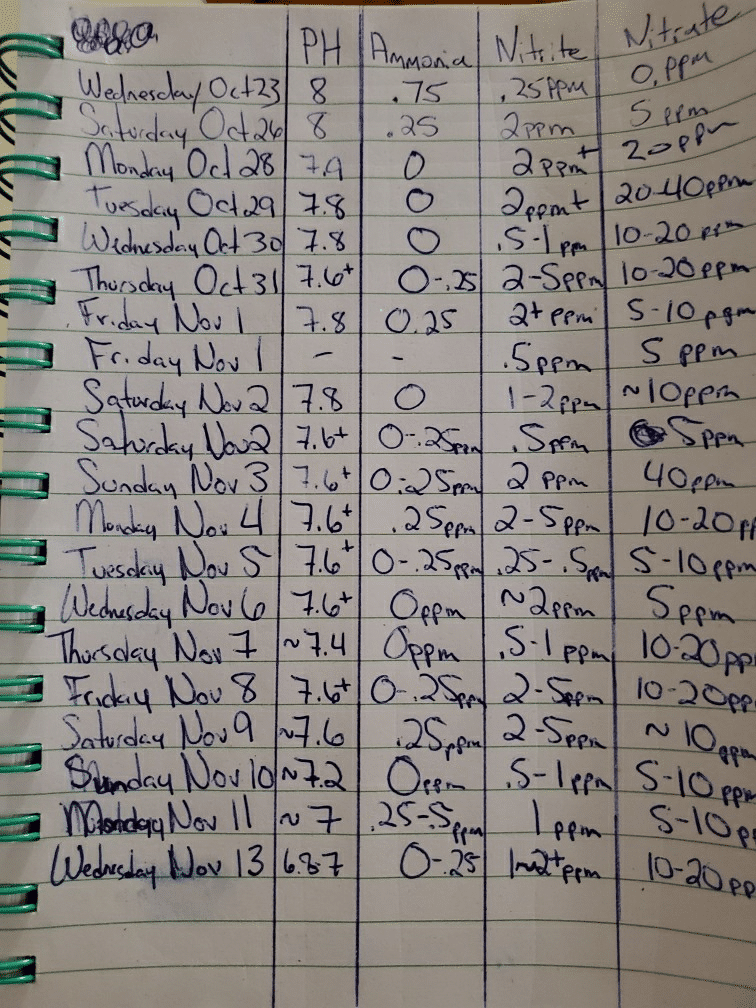 PH Ammonia Nitrite Nitrate
Wednesday Oct 23 8 .75 .25ppm 0.ppm
Saturday Oct 26 8 .25 2ppm 5 ppm
Monday Oct 28 7.9 0 2ppm+ 20ppm
Tuesday Oct 29 7.8 0 2ppm+ 20-40ppm
Wednesday Oct 30 7.8 0 .5-1ppm 10-20 ppm
Thursday Oct 31 7.6+ 0-.25 2-5ppm 10-20ppm
Friday Nov 1 7.8 0.25 2+ ppm 5-10 ppm
Friday Nov 1 - - .5ppm 5 ppm
Saturday Nov 2 7.8 0 1-2ppm ~10ppm
Saturday Nov 2 7.6+ 0-.25ppm .5ppm 5ppm
Sunday Nov 3 7.6+ 0-.25ppm 2 ppm 40ppm
Monday Nov 4 7.6+ .25ppm 2-5ppm 10-20pp
Tuesday Nov 5 7.6+ 0-.25ppm .25-.5ppm 5-10ppm
Wednesday Nov 6 7.6+ 0ppm ~2ppm 5ppm
Thursday Nov 7 ~7.4 0ppm .5-1ppm 10-20pp
Friday Nov 8 7.6+ 0-.25ppm 2-5ppm 10-20pp
Saturday Nov 9 ~7.6 .25ppm 2-5ppm ~10ppm
Sunday Nov 10 ~7.2 0ppm .5-1ppm 5-10ppm
Monday Nov 11 ~7 .25-.5ppm 1ppm 5-10p
Wednesday Nov 13 6.8-7 0-.25 1-2+ppm 10-20pp